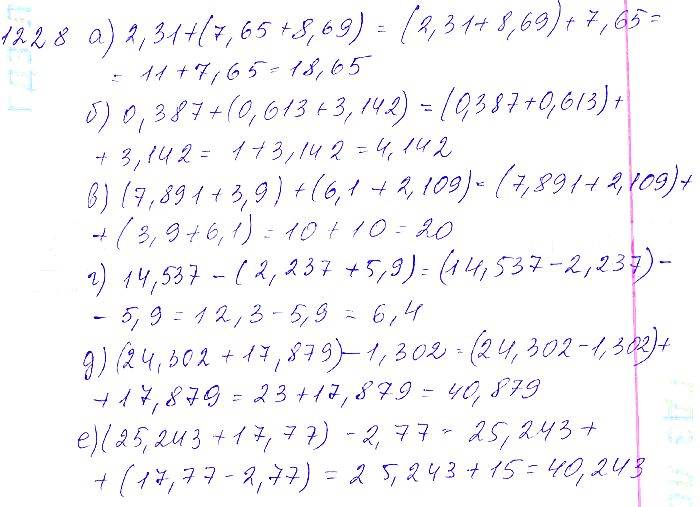 1228 а) 2,31+(7,65+8,69) = (2,31+8,69)+7,65=
= 11+7,65=18,65
б) 0,387+(0,613+3,142) = (0,387+0,613)+
+ 3,142 = 1+3,142 = 4,142
в) (7,891+3,9)+(6,1+2,109)= (7,891+2,109)+
+ (3,9+6,1) = 10+10=20
г) 14,537-(2,237+5,9)=(14,537-2,237)-
- 5,9 = 12,3-5,9 = 6,4
д) (24,302+17,879)-1,302=(24,302-1,302)+
+17,879 = 23+17,879 = 40,879
е)(25,243+17,77)-2,77= 25,243+
+ (17,77-2,77) = 25,243+15=40,243
ГДЗЛ
ГДЗ ЛО